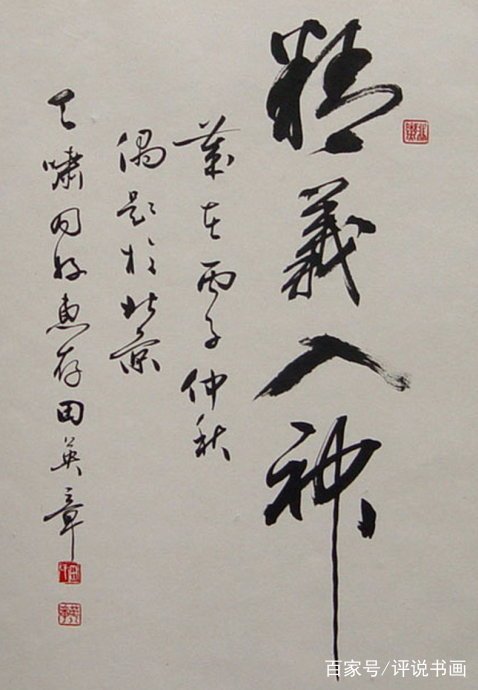 精義入神
歲在丙子仲秋
偶題於北京
天嘯同好惠存田英章
百家号/评说书画